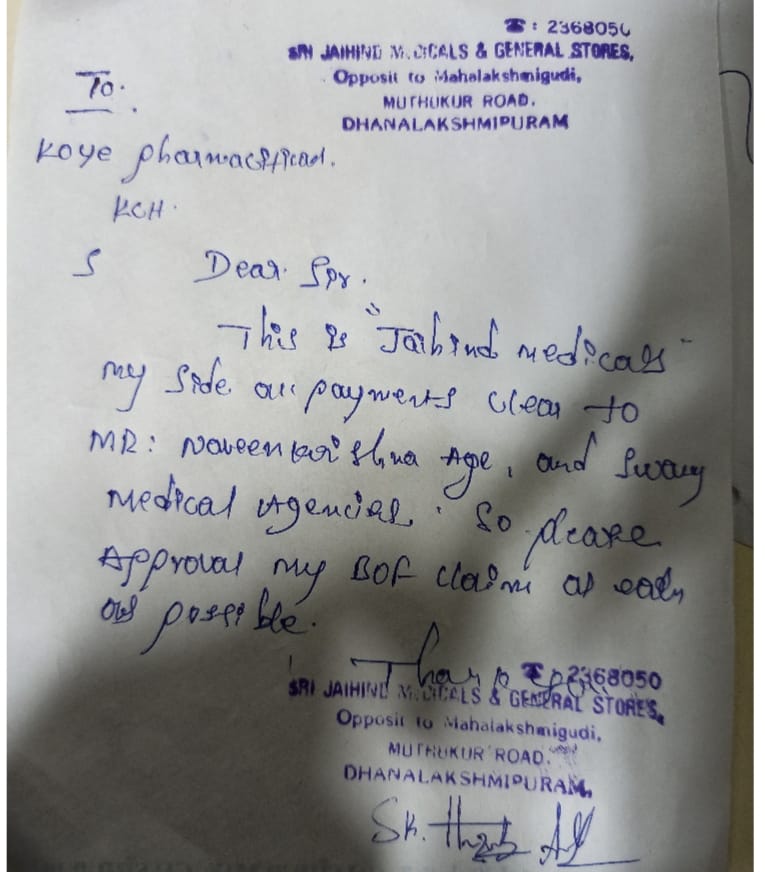 ☎ : 2368050
SRI JAIHIND MEDICALS & GENERAL STORES,
Opposit to Mahalakshmigudi,
MUTHUKUR ROAD,
DHANALAKSHMIPURAM
To.
Koye pharmacitical.
KCH.
S Dear Sir.
This is "Jaihind medicals"
my side all payments clear to
MR: Naveen krishna Age, and Swamy
Medical Agencies. So please
Approval my BOF claim as early
as possible.
Thank you
☎ 2368050
SRI JAIHIND MEDICALS & GENERAL STORES,
Opposit to Mahalakshmigudi,
MUTHUKUR ROAD.
DHANALAKSHMIPURAM.
Sk.